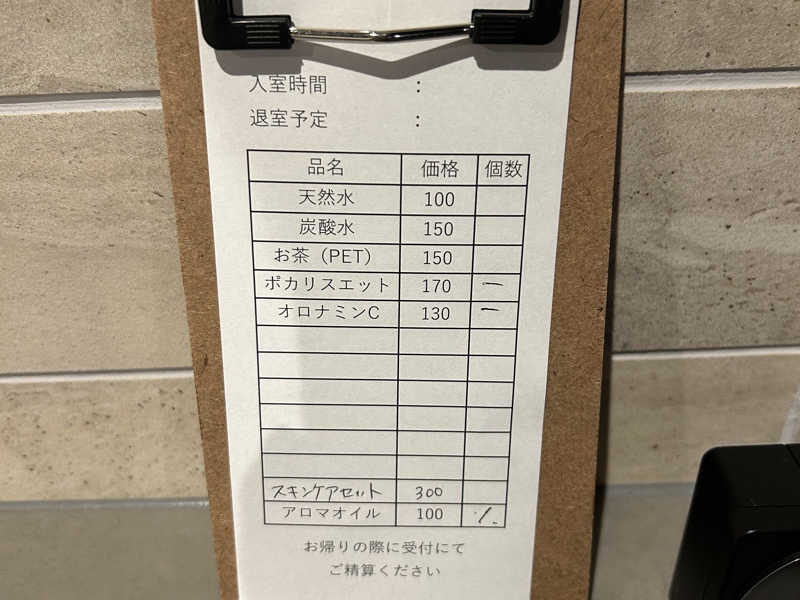 入室時間 :
退室予定 :
品名 価格 個数
天然水 100
炭酸水 150
お茶（PET） 150
ポカリスエット 170 一
オロナミンC 130 一
スキンケアセット 300
アロマオイル 100
お帰りの際に受付にて
ご精算ください